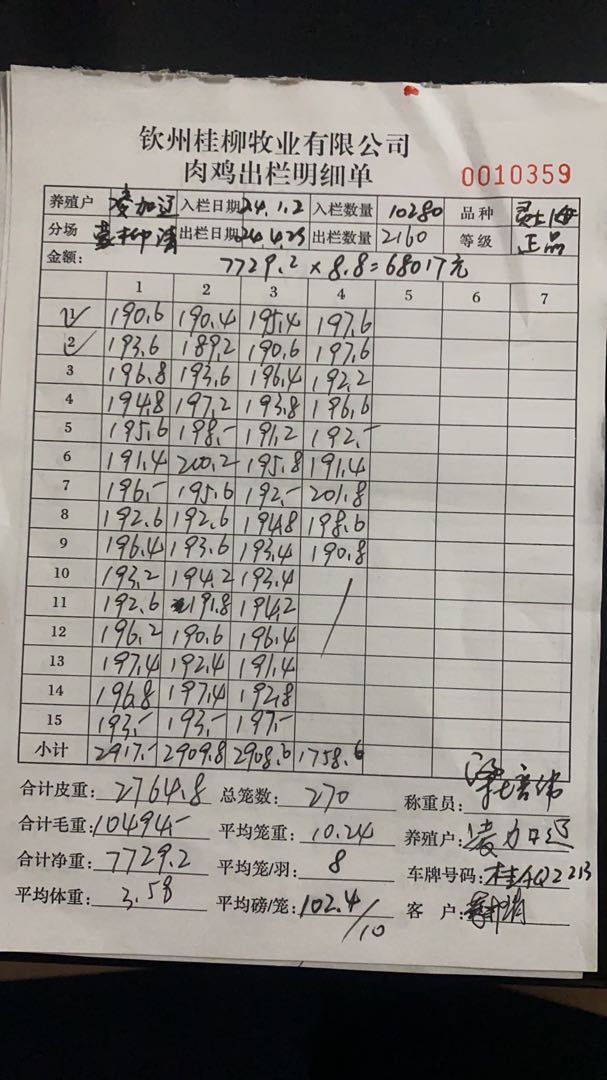 钦州桂柳牧业有限公司
肉鸡出栏明细单 0010359
养殖户 凌加辽 入栏日期 24.1.2 入栏数量 10280 品种
分场 出栏日期 24.4.23 出栏数量 2160 等级 正品
金额: 7729.2 × 8.8 = 68017元
1 2 3 4 5 6 7
1 190.6 190.4 195.4 197.6
2 193.6 189.2 190.6 197.6
3 196.8 193.6 196.4 192.2
4 194.8 197.2 193.8 196.6
5 195.6 198.- 191.2 192.-
6 191.4 200.2 195.8 191.4
7 196.- 195.6 192.- 201.8
8 192.6 192.6 194.8 198.6
9 196.4 193.6 193.4 190.8
10 193.2 194.2 193.4
11 192.6 191.8 194.2
12 196.2 190.6 196.4
13 197.4 192.4 191.4
14 196.8 197.4 192.8
15 193.- 193.- 197.-
小计 2917.- 2909.8 2908.6 1758.6
合计皮重: 2764.8 总笼数: 270 称重员:
合计毛重: 10494.- 平均笼重: 10.24 养殖户: 凌加辽
合计净重: 7729.2 平均笼/羽: 8 车牌号码: 桂AQ2213
平均体重: 3.58 平均磅/笼: 102.4/10 客户: